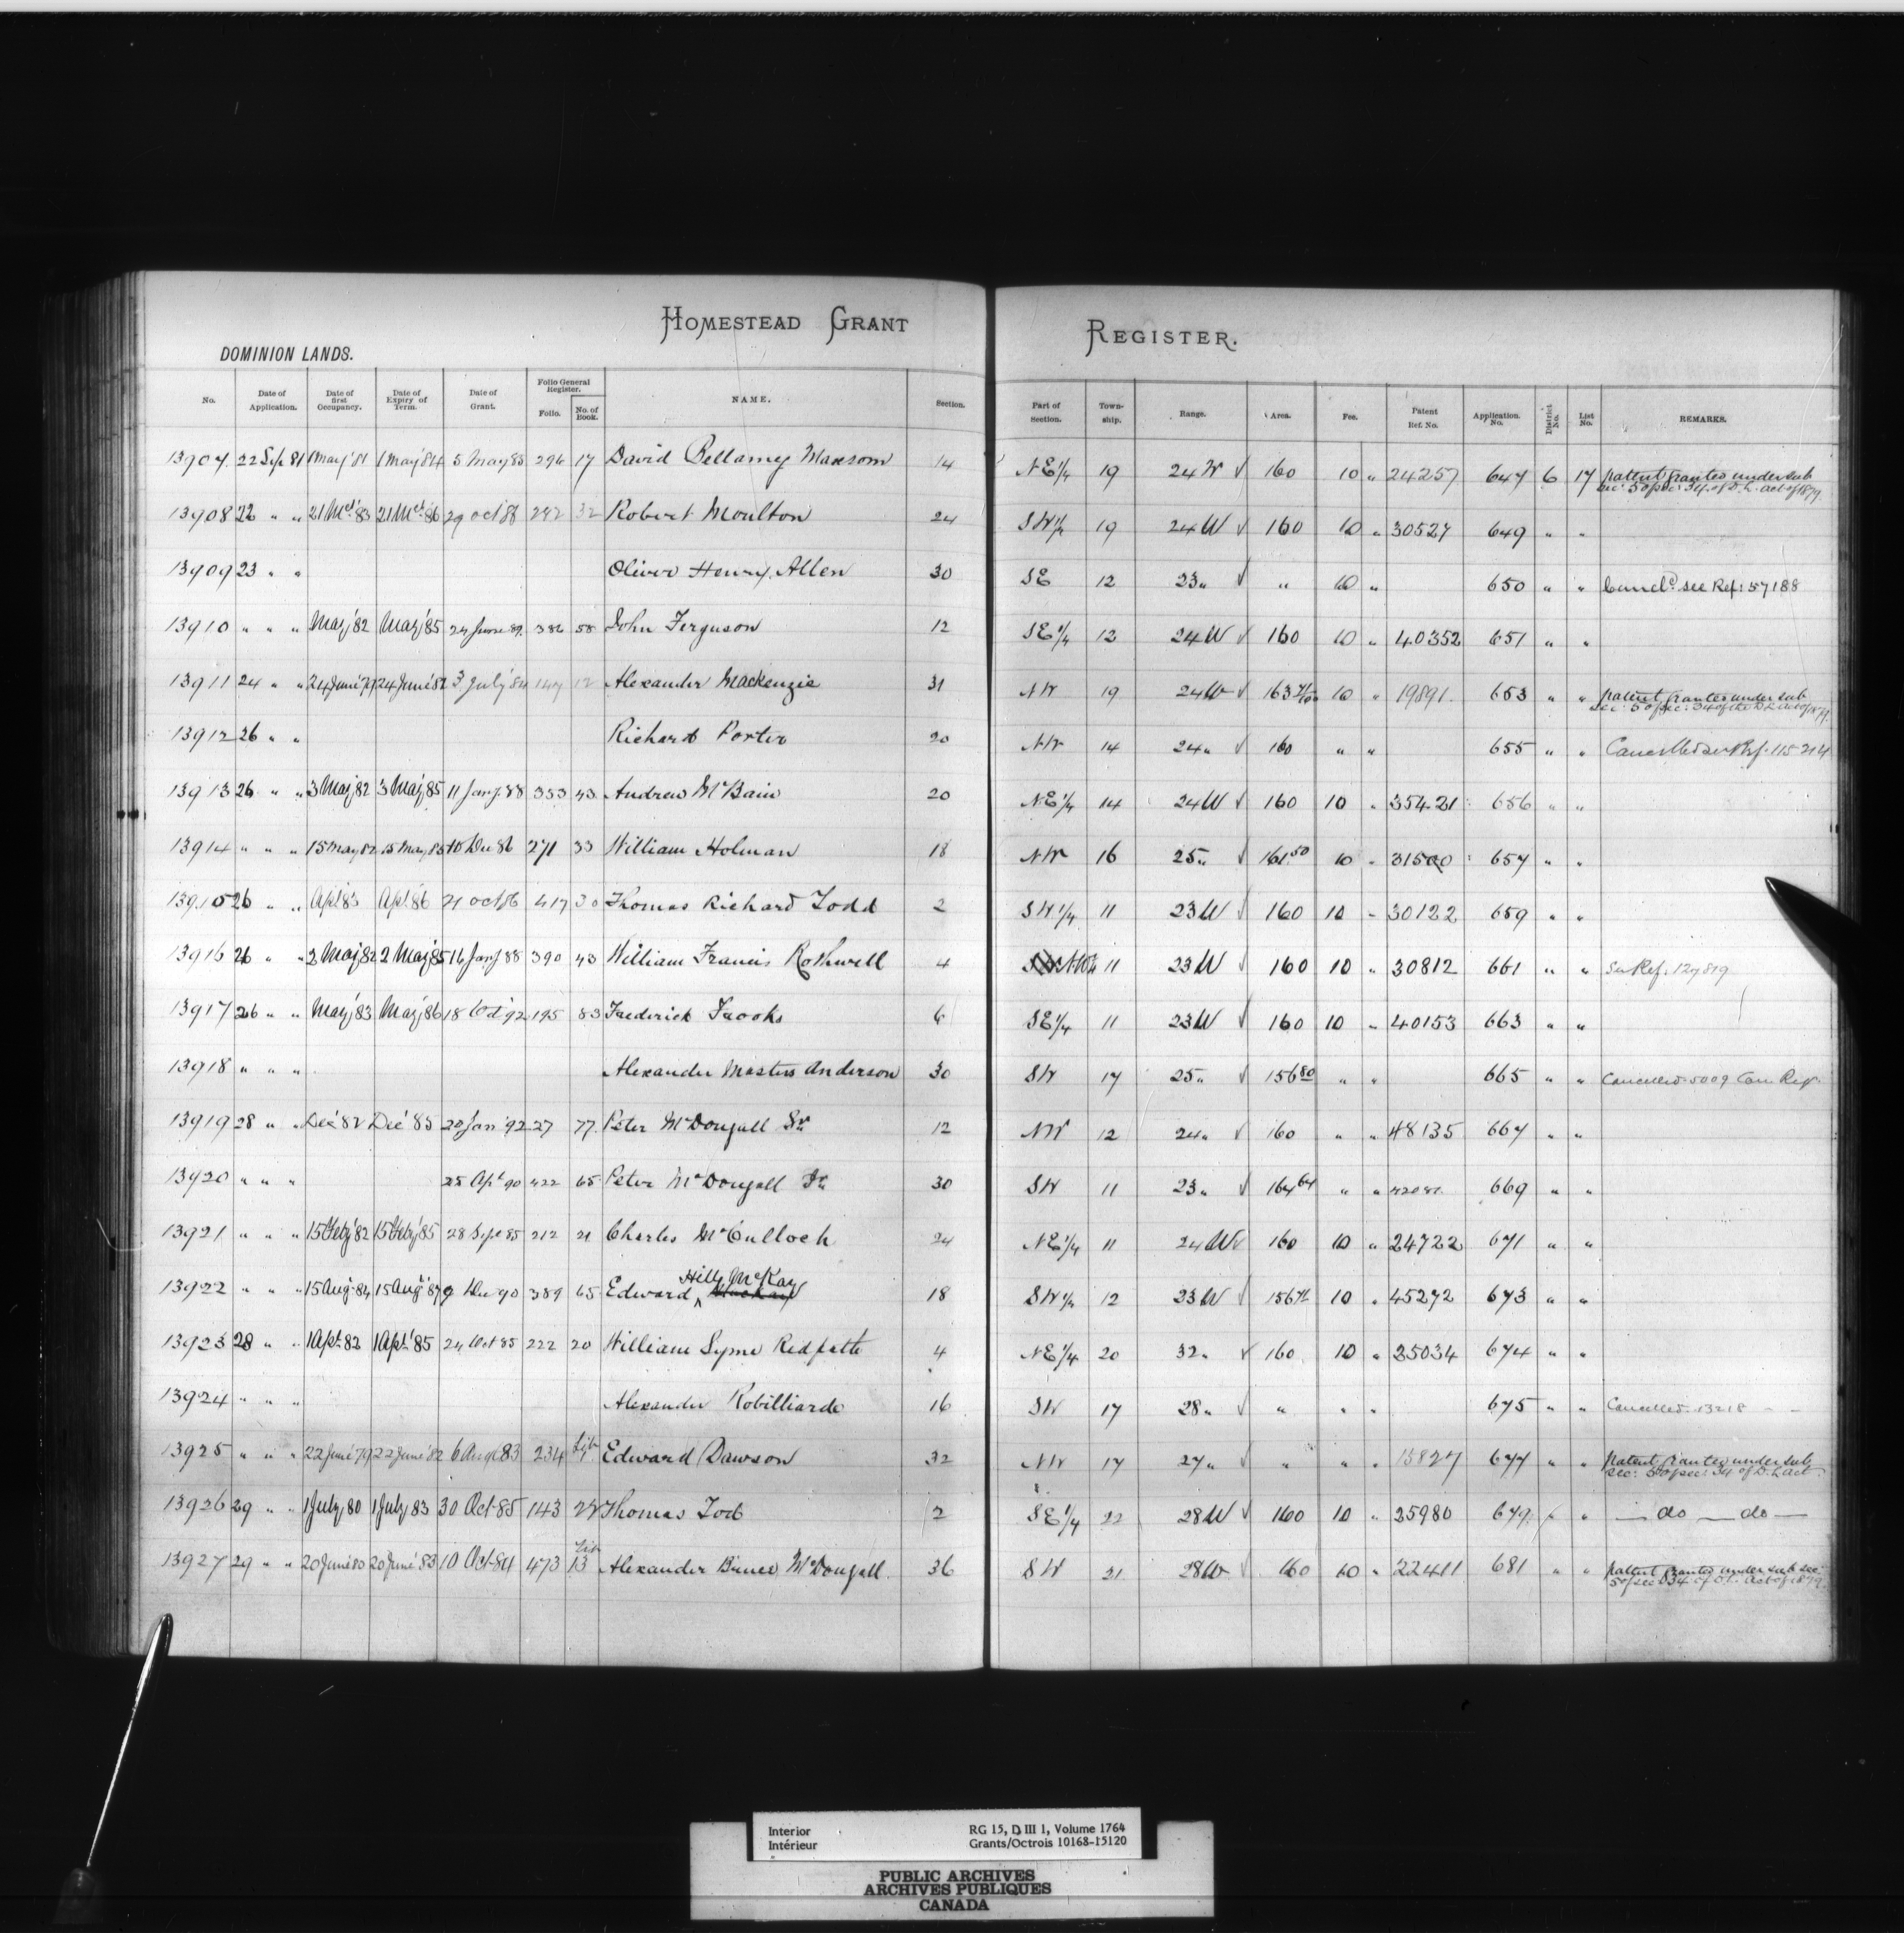 HOMESTEAD GRANT REGISTER.
DOMINION LANDS.
No. Date of Application. Date of first Occupancy. Date of Expiry of Term. Date of Grant. Folio General Register. Folio. No. of Book. NAME. Section. Part of Section. Town-ship. Range. Area. Fee. Patent Ref. No. Application. No. District No. List No. REMARKS.
13907. 22 Sep 81 1 May '81 1 May '84 5 May 83 296 17 David Bellamy 14 NE 1/4 19 24 W ✓ 160 10 " 24257 647 6 17 patent granted under sub sec: 5 of sec: 34 of D. L. act of 1879
13908 22 " " 21 Mch '83 21 Mch '86 29 Oct 282 32 Robert Moulton 24 SW 1/4 19 24 W ✓ 160 10 " 30527 649 " "
13909 23 " " Oliver Henry Allen 30 SE 12 23 " ✓ " 10 " 650 " " Cancld see Ref: 57188
13910 " " " May '82 May '85 June 89 386 58 John Ferguson 12 SE 1/4 12 24 W ✓ 160 10 " 40352 651 " "
13911 24 " " 24 June '79 24 June '82 3 July '84 147 12 Alexander Mackenzie 31 NW 19 24 W ✓ 163 10 " 19891 653 " " patent granted under sub sec: 5 of sec: 34 of the D L act of 1879
13912 26 " " Richard Porter 20 NW 14 24 " ✓ 160 " " 655 " " Cancelled see Ref. 115214
13913 26 " " 3 May 82 3 May '85 11 Jany. 88 353 43 Andrew McBain 20 NE 1/4 14 24 W ✓ 160 10 " 35421 656 " "
13914 " " " 15 May 82 15 May 85 10 Dec 86 271 33 William Holman 18 NW 16 25 " ✓ 161 50 10 " 31500 657 " "
13915 26 " " Apl 83 Apl 86 21 Oct 86 417 30 Thomas Richard Todd 2 SW 1/4 11 23 W ✓ 160 10 " 30122 659 " "
13916 26 " " 2 May 82 2 May 85 16 Jany 88 390 43 William Francis Rothwell 4 NW 1/4 11 23 W ✓ 160 10 " 30812 661 " " See Ref. 127819
13917 26 " " May '83 May '86 18 Oct '92 195 83 Frederick Frooks 6 SE 1/4 11 23 W ✓ 160 10 " 40153 663 " "
13918 " " " Alexander Masters Anderson 30 SW 17 25 " ✓ 156 80 " " 665 " " Cancelled 5009 Can. Reg.
13919 28 " " Dec '82 Dec '85 20 Jan '92 27 77 Peter McDougall Sr 12 NW 12 24 " ✓ 160 " " 48135 667 " "
13920 " " " 25 Apl 90 422 65 Peter McDougall Jr 30 SW 11 23 " ✓ 164 64 " " 669 " "
13921 " " " 15 Feby '82 15 Feby '85 28 Sept 85 212 21 Charles McCulloch 24 NE 1/4 11 24 W ✓ 160 10 " 24722 671 " "
Hill McKay
13922 " " " 15 Aug. 84 15 Aug '87 9 Dec 90 389 65 Edward 18 SW 1/4 12 23 W ✓ 156 10 " 45272 673 " "
13923 28 " " 1 Apl. 82 1 Apl '85 24 Oct 85 222 20 William Syme Redpath 4 NE 1/4 20 32 " ✓ 160 10 " 25034 674 " "
13924 " " " Alexander Robilliarde 16 SW 17 28 " ✓ " " " 675 " " Cancelled 13218 - -
13925 " " " 22 June '79 22 June '82 6 Aug 83 234 Lib 7 Edward Dawson 32 NW 17 27 " " " " 15827 677 " " patent granted under sub sec: 5 of sec: 34 of D. L act
13926 29 " " 1 July 80 1 July 83 30 Oct 85 143 22 Thomas 2 SE 1/4 22 28 W ✓ 160 10 " 25980 679 " " — do — do —
13927 29 " " 20 June 80 20 June '83 10 Oct 84 473 Lib 13 Alexander Bruce McDougall 36 SW 21 28 W ✓ 160 10 " 22411 681 " " patent granted under sub sec: 5 of sec 34 of D L act of 1879
Interior
Intérieur
RG 15, D III 1, Volume 1764
Grants/Octrois 10168-15120
PUBLIC ARCHIVES
ARCHIVES PUBLIQUES
CANADA